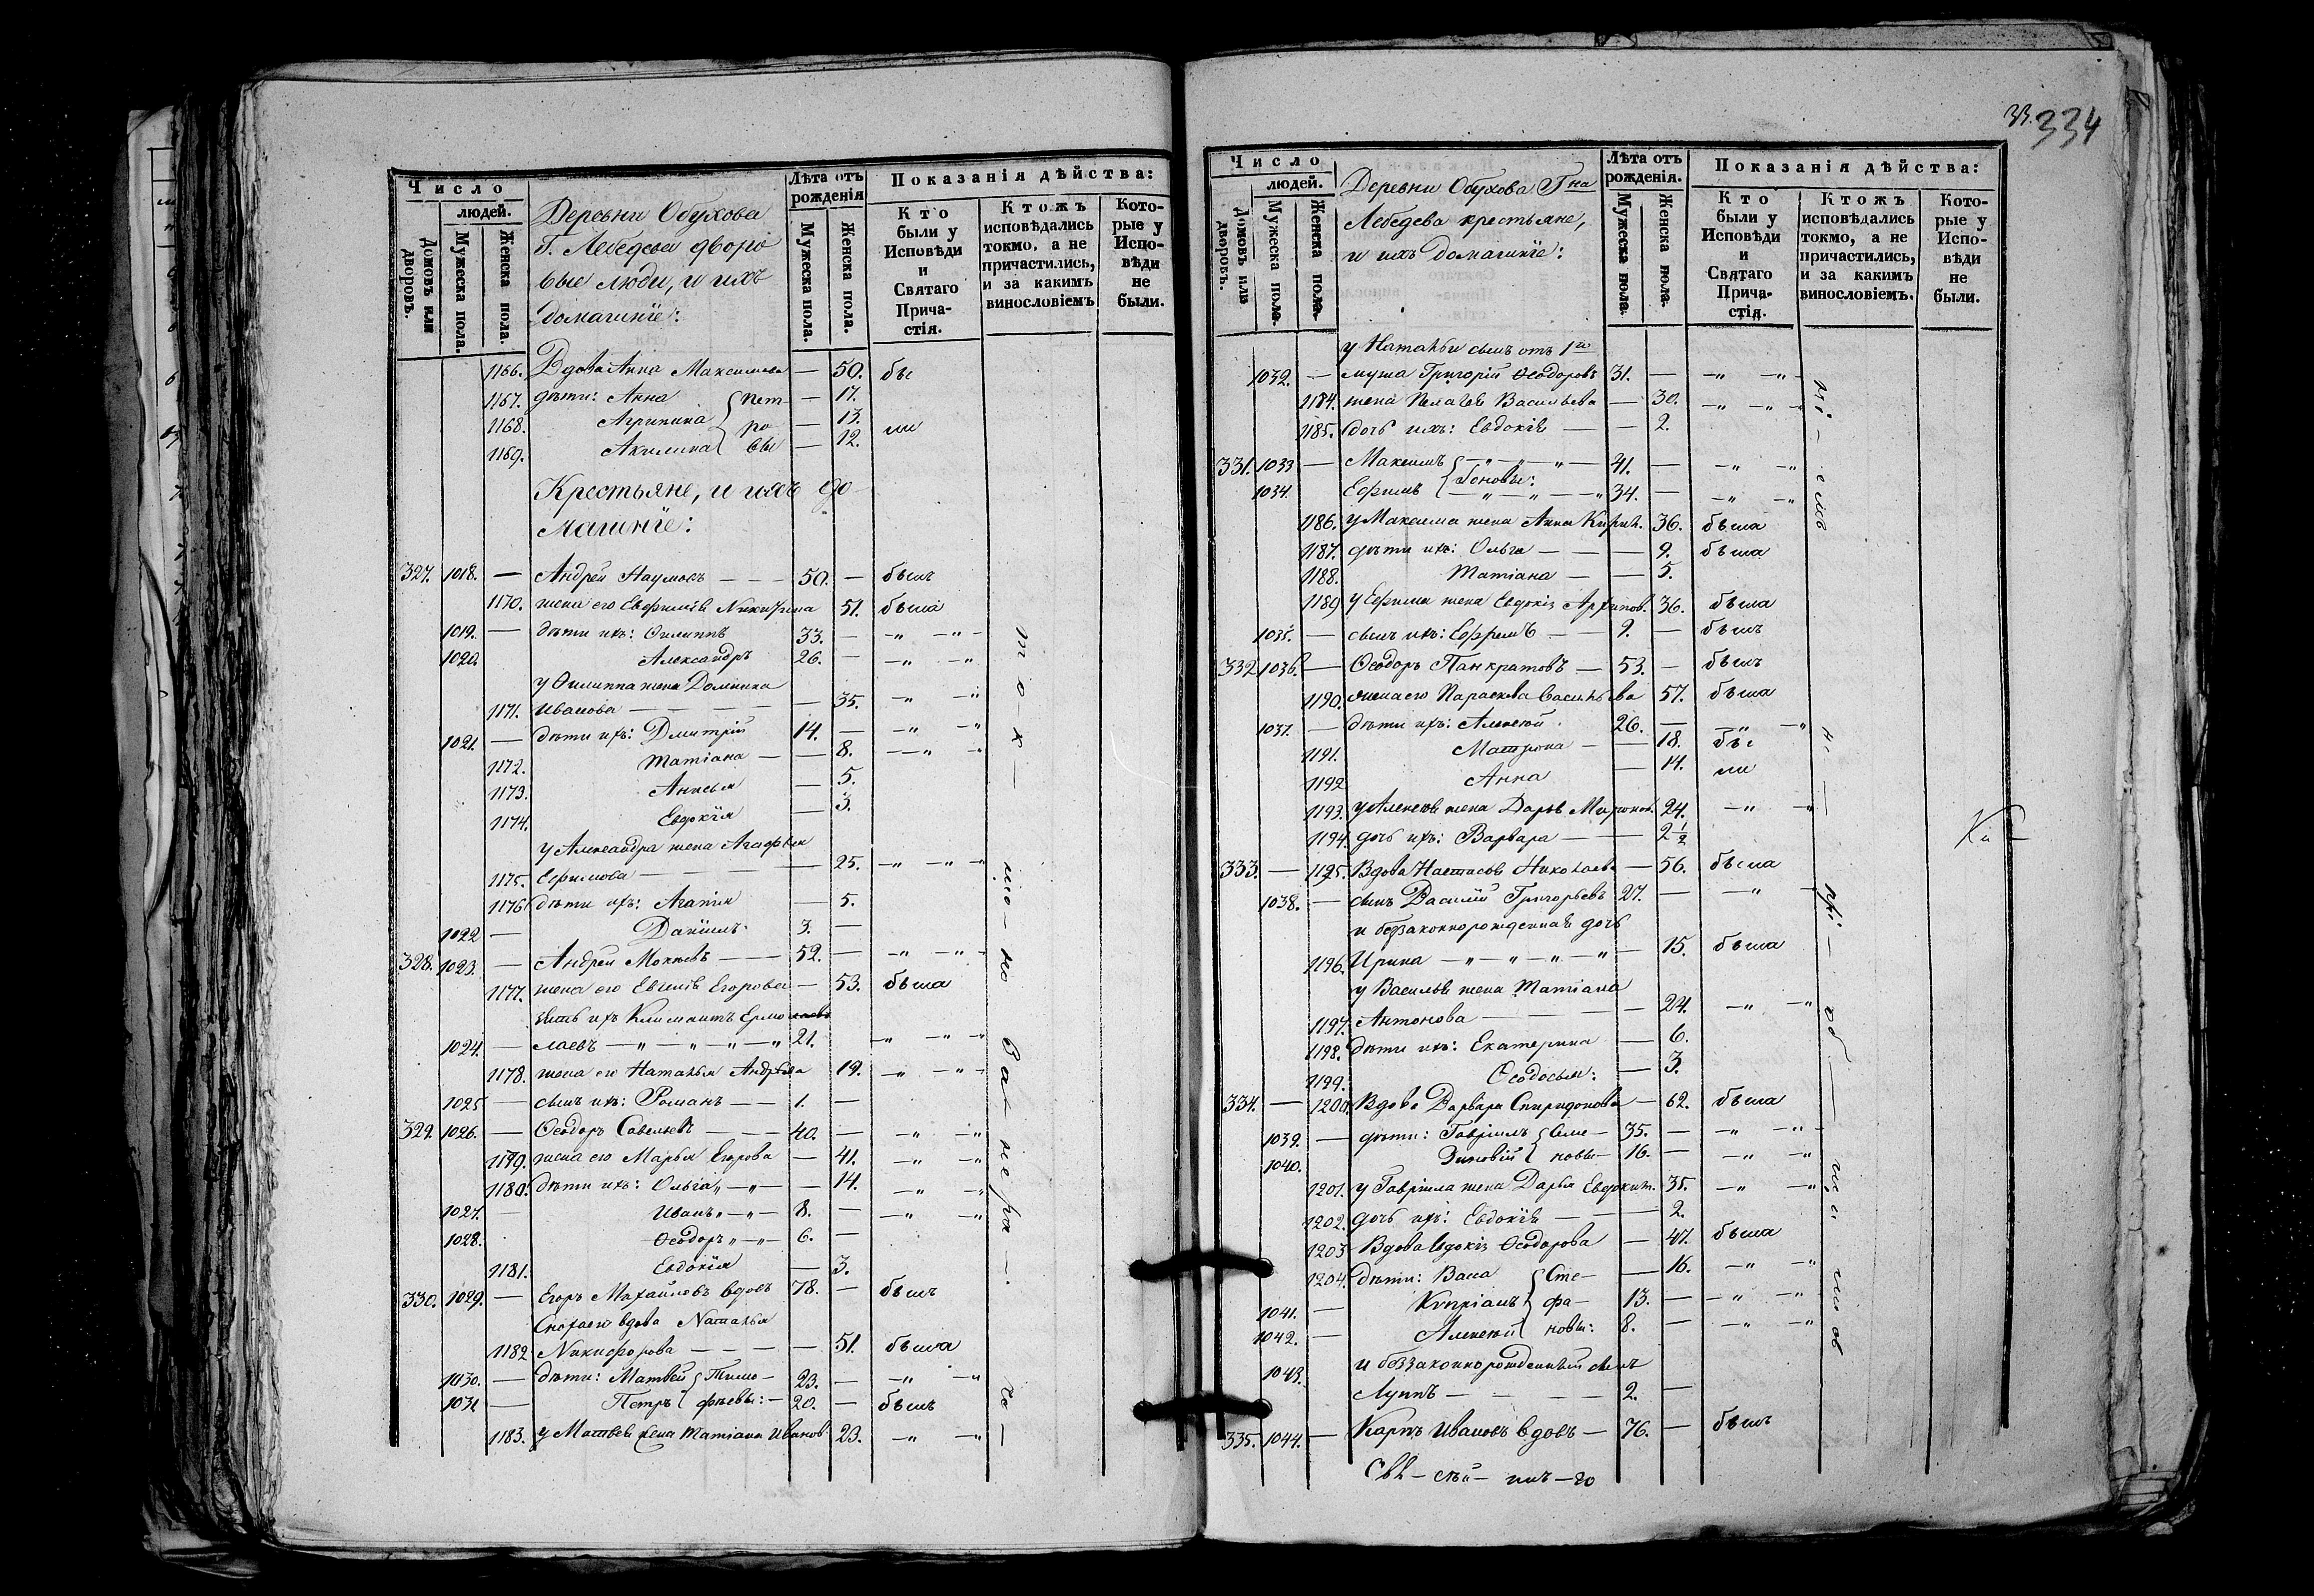 334
Число
людей.
Домовъ или дворовъ.
Мужеска пола.
Женска пола.
Деревни Обухова
Г. Лебедева дворо
вые люди, и ихъ
домашнїе:
Лѣта отъ рожденія
Мужеска пола.
Женска пола.
Показанія дѣйства:
Кто были у Исповѣди и Святаго Причастія.
Ктожъ исповѣдались токмо, а не причастились, и за какимъ винословіемъ
Которые у Исповѣди не были.
1166. Вдова Анна Максимова — 50. бы
1167. дѣти: Анна { Пет — 17.
1168. Агрипина ро — 13. ли
1169. Акилина вы — 12.
Крестьяне, и ихъ до
машнїе:
327. 1018. — Андрей Наумовъ — — — 50. — былъ
1170. жена его Евфимїя Никифрова 51. была
1019. — дѣти ихъ: Филиппъ 33. — -"- -"-
1020. Александръ 26. — -"- -"-
у Филиппа жена Домника
1171. Иванова — — — — — 35. -"- -"-
1021. — дѣти ихъ: Дмитрій 14. — -"- -"-
1172. Татіана — — 8. -"- -"-
1173. Анисья — 5.
1174. Евдокїя — 3.
у Александра жена Агафья
1175. Ефимова — — — — 25. -"- -"-
1176. дѣти ихъ: Агапия — 5.
1022 — Данїилъ. 3. —
328. 1023. — Андрей Мокѣевъ — — — 52. — -"- -"-
1177. жена его Евгенїя Егорова — 53. была
зять ихъ Климентъ Ермо
1024. — лаевъ -"-"-"-" 21. -"- -"-
1178. жена его Наталья Андрѣева 19. -"- -"-
1025 — сынъ ихъ: Романъ — — 1. —
329. 1026. — Ѳеодоръ Савельевъ — — — 40. — -"- -"-
1179. жена его Марья Егорова — 41. -"- -"-
1180. дѣти ихъ: Ольга -"- — 14. -"- -"-
1027. — Иванъ -"- 8. — -"- -"-
1028. Ѳеодоръ -"- 6. —
1181. Евдокїя — 3.
330. 1029. — Егоръ Михайловъ вдовъ 78. — былъ
Сноха его вдова Наталья
1182 Никифорова — — — — 51. была
1030. — дѣти: Матвей { Тимо— 23. — -"- -"-
1031 — Петръ { фѣевы: — 20. — былъ
1183. у Матвея жена Татіана Иванов. 23. -"- -"-
Число
людей.
Домовъ или дворовъ.
Мужеска пола.
Женска пола.
Деревни Обухова Гна
Лебедева крестьяне,
и ихъ домашнїе:
Лѣта отъ рожденія.
Мужеска пола.
Женска пола.
Показанія дѣйства:
Кто были у Исповѣди и Святаго Причастія.
Ктожъ исповѣдались токмо, а не причастились, и за какимъ винословіемъ.
Которые у Исповѣди не были.
у Натальи сынъ отъ 1го
1032. — мужа Григорїй Ѳеодоровъ 31. — -"- -"-
1184. жена Пелагея Васильева — 30. -"- -"-
1185. дочь ихъ: Евдокїя — — 2.
331. 1033 — Максимъ { -"-"-"- 41. — -"- -"-
1034. Ефимъ { -"-"-"- 34. — -"- -"-
1186. у Максима жена Анна Кирил. 36. была
1187. дѣти ихъ: Ольга — — — 9. была
1188. Татіана — — 5.
1189 у Ефима жена Евдокїя Архипов. 36. была
1035. — сынъ ихъ: Ефремъ — — 9. — былъ
332 1036. — Ѳеодоръ Панкратовъ — 53. — былъ
1190. жена его Параскева Васильева 57. была
1037. — дѣти ихъ: Алексѣй 26. — -"- -"-
1191. Матрона — — 18. бы
1192 Анна — 14. ли
1193. у Алексѣя жена Дарья Миронов. 24. -"- -"-
1194. дочь ихъ: Варвара — — — 2 1/2
333. — 1195. Вдова Настасья Николаева — 56. была
1038. — сынъ Василїй Григорьевъ 27. — -"-
и беззаконнорожденная дочь
1196. Ирина -"-"-"-"- 15. была
у Василья жена Татіана
1197. Антонова — — — 24. -"- -"-
1198. дѣти ихъ: Екатерина — 6.
1199. Ѳеодосья: — 3.
334. — 1200. Вдова Варвара Спиридонова — 62. была
1039. — дѣти: Гавріилъ { Симе— 35. — -"- -"-
1040. Зиновїй { новы— 16. — -"- -"-
1201. у Гавріила жена Дарья Евдоким. 35. -"- -"-
1202. дочь ихъ: Евдокїя — — — 2.
1203 Вдова Евдокїя Ѳеодорова — 47. была
1204. дѣти: Васса { Сте— — 16. -"- -"-
1041. — Купріанъ { фа— 13. — -"- -"-
1042. — Алексѣй { новы: 8. — -"- -"-
1043. и беззаконнорожденный сынъ
Луппъ — — — — 2. —
335. 1044. — Карпъ Ивановъ вдовъ — 76. — былъ